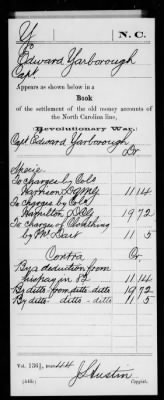 Y N. C.
Co
Edward Yarborough
Capt.
Appears as shown below in a
Book
of the settlement of the old money accounts of
the North Carolina line,
Revolutionary War.
Capt Edward Yarborough
Dr
Specie
To charges by Colo
Harrison 11 14
To charges by Colo
Hamilton 19 72
To charges of Cloathing
by Wm Dart 11 5
Contra Cr.
By a deduction from
11 14
By ditto from ditto ditto 19 72
By ditto ditto ditto 11 5
Vol. 136½, page 44
J S Austin
Copyist.